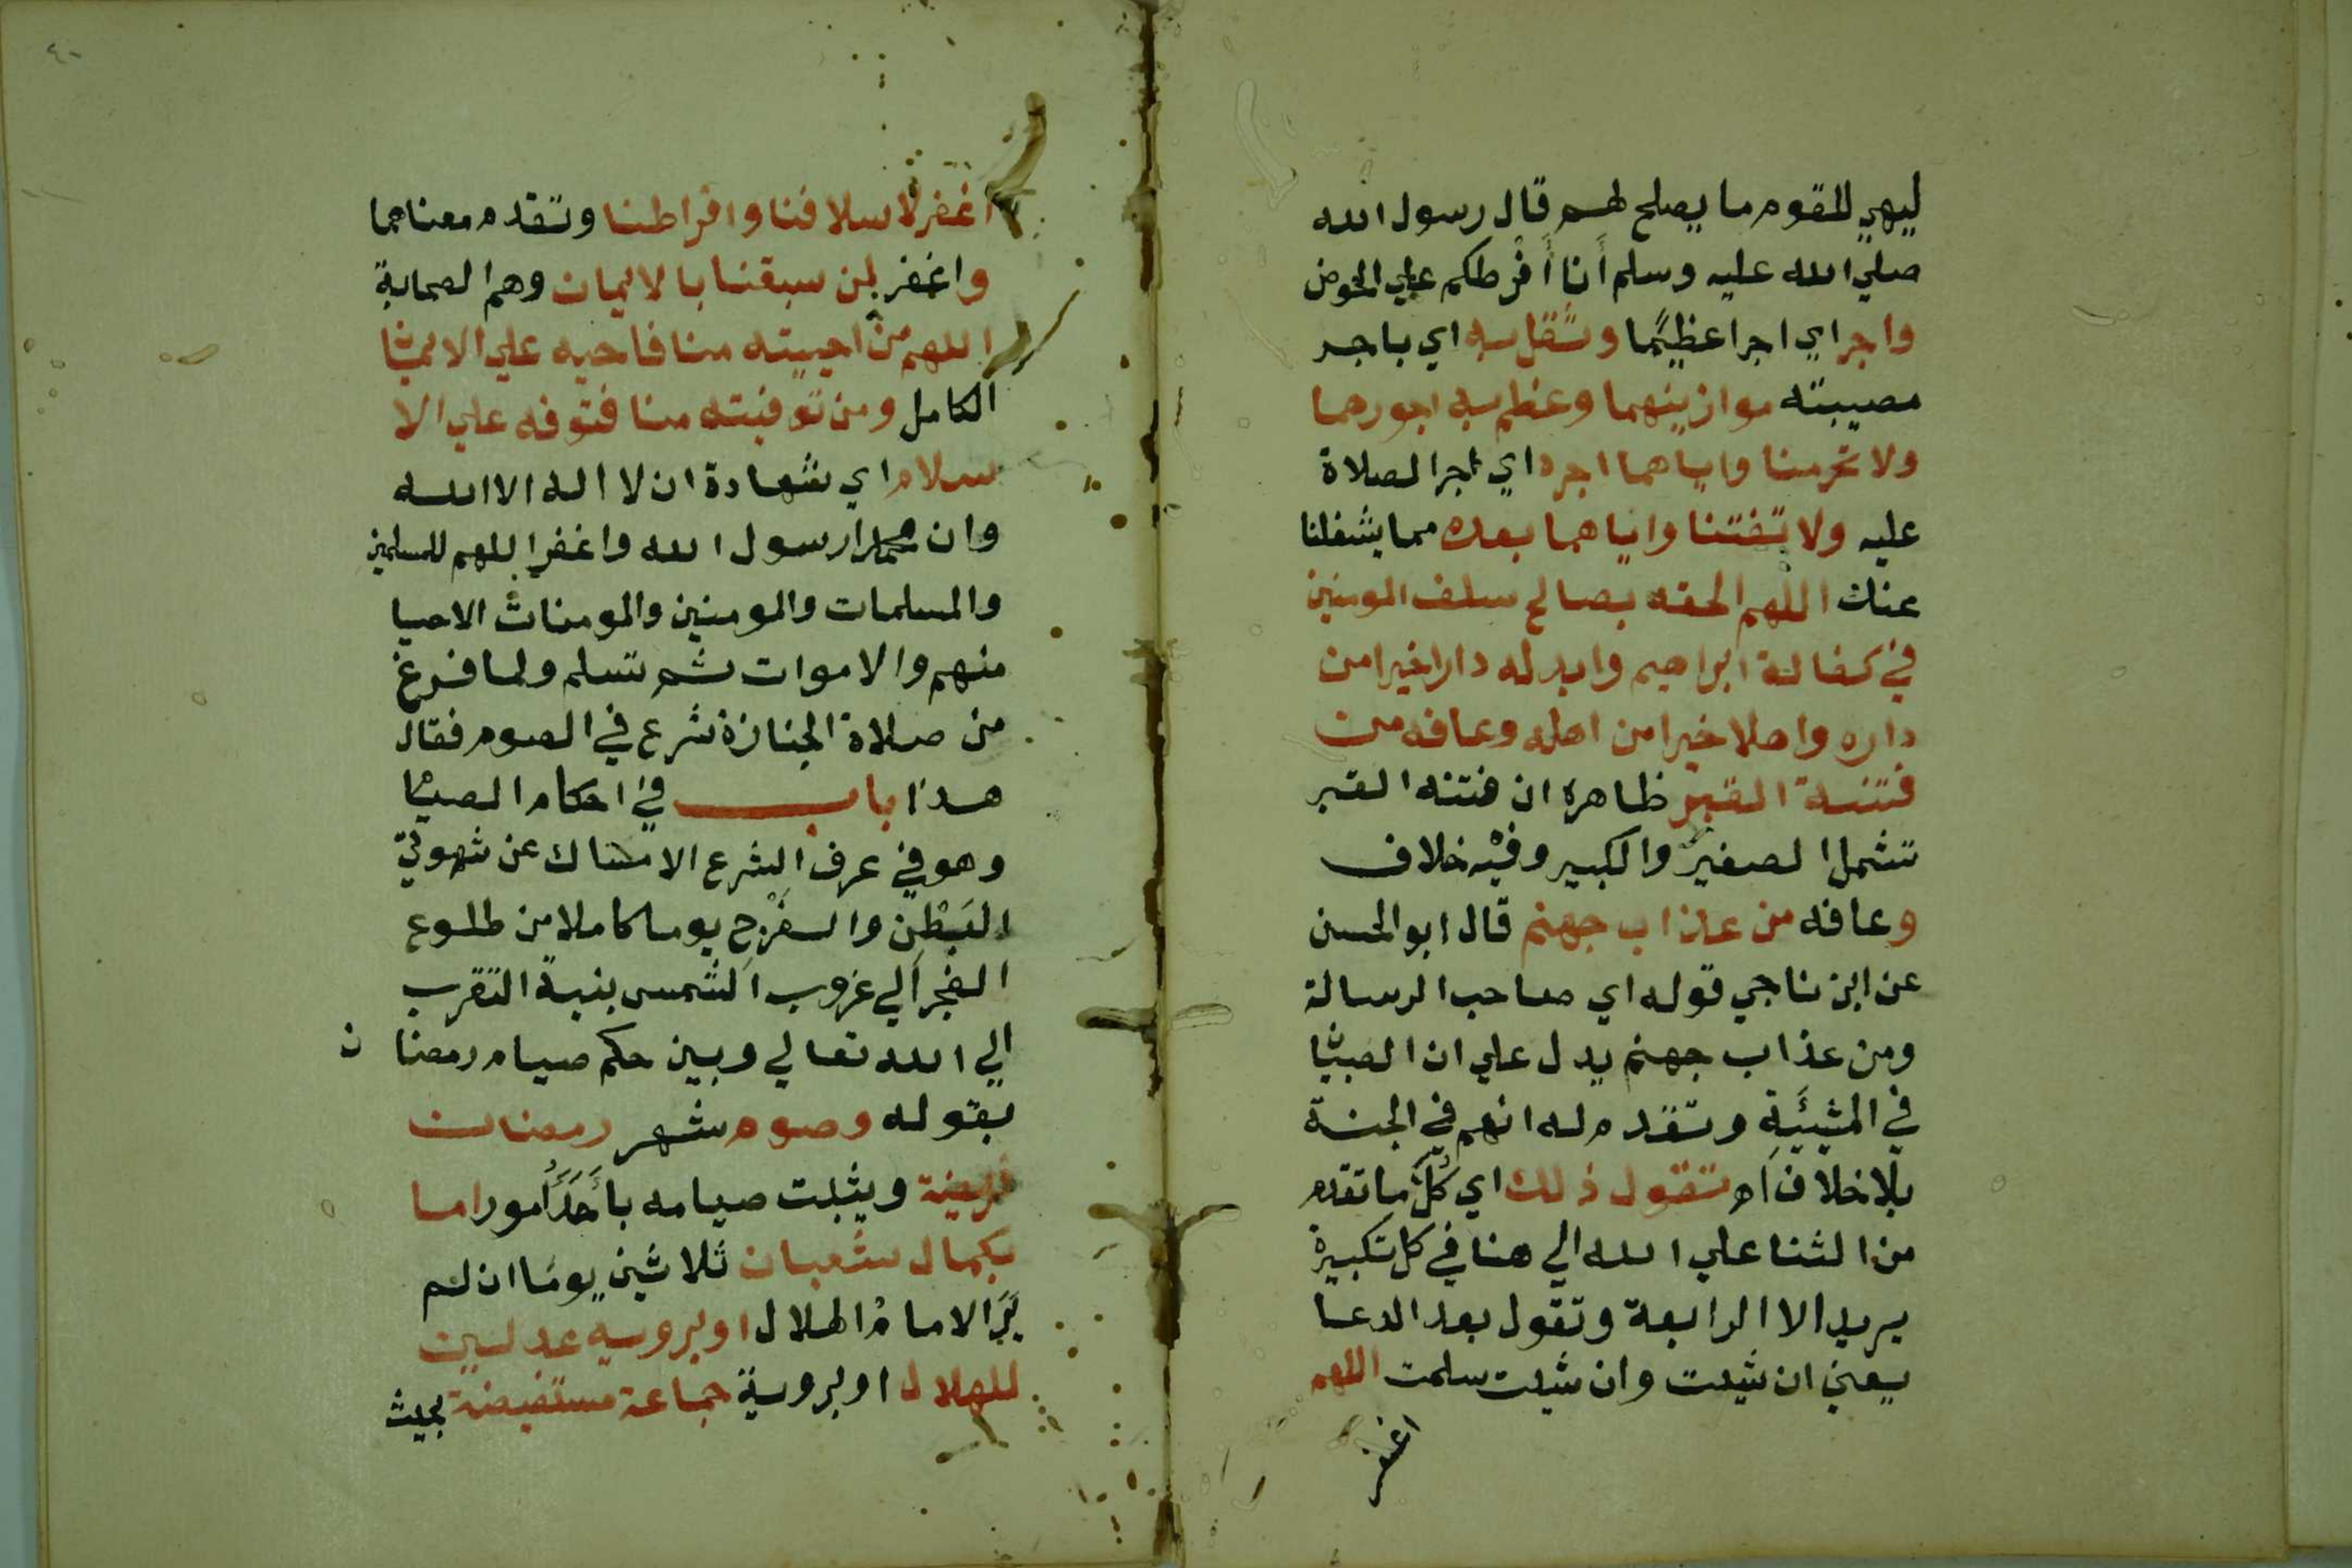 ليهي للقوم ما يصلح لهم قال رسول الله
صلي الله عليه وسلم أنا أفرطكم علي الحوض
واجرا اي اجرا عظيما وثقل به اي باجر
مصيبته موازينهما وعظم به اجورهما
ولا تحرمنا واياهما اجره اي اجر الصلاة
عليه ولا تفتنا واياهما بعده مما يشغلنا
عنك اللهم الحقه بصالح سلف المومنين
في كفالة ابراهيم وابدله دارا خيرا من
داره واهلا خيرا من اهله وعافه من
فتنة القبر ظاهره ان فتنه القبر
تشمل الصغير والكبير وفيه خلاف
وعافه من عذاب جهنم قال ابو الحسن
عن ابن ناجي قوله اي صاحب الرسالة
ومن عذاب جهنم يدل علي ان الصبيا
في المشيئة وتقدم له انهم في الجنة
بلا خلاف اه تقول ذلك اي كل ما تقدم
من الثنا علي الله الي هنا في كل تكبيرة
يريد الا الرابعة وتقول بعد الدعا
يعني ان شيت وان شيت سلمت اللهم
اغفر
٤٠
اغفر لاسلافنا وافراطنا وتقدم معناهما
واغفر لمن سبقنا بالايمان وهم الصحابة
اللهم من احييته منا فاحيه علي الايمان
الكامل ومن توفيته منا فتوفه علي الا
سلام اي شهادة ان لا اله الا الله
وان محمدا رسول الله واغفر اللهم للمسلمين
والمسلمات والمومنين والمومنات الاحيا
منهم والاموات ثم تسلم ولما فرغ
من صلاة الجنازة شرع في الصوم فقال
هذا باب في احكام الصيا
وهو في عرف الشرع الامساك عن شهوتي
البطن والفرج يوما كاملا من طلوع
الفجر الي غروب الشمس بنية التقرب
الي الله تعالي وبين حكم صيام رمضا ن
بقوله وصوم شهر رمضان
فريضة ويثبت صيامه بأحد أمور اما
بكمال شعبان ثلاثين يوما ان لم
ير الامام الهلال او برويه عدلين
للهلال او بروية جماعة مستفيضة بحيث